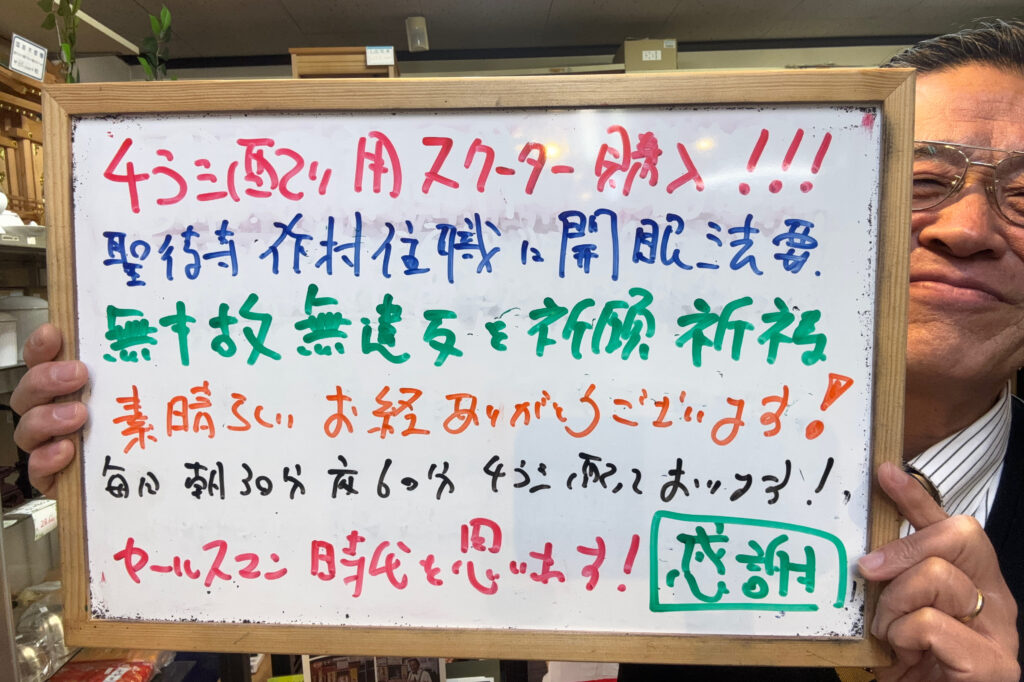 チラシ配り用スクーター購入!!!
聖待寺 木村住職に開眼法要.
無事故無違反を祈願 祈祷
素晴らしい お経ありがとうございます!
毎日 朝30分 夜60分 チラシ配っております!
セールスマン時代を思います! 感謝